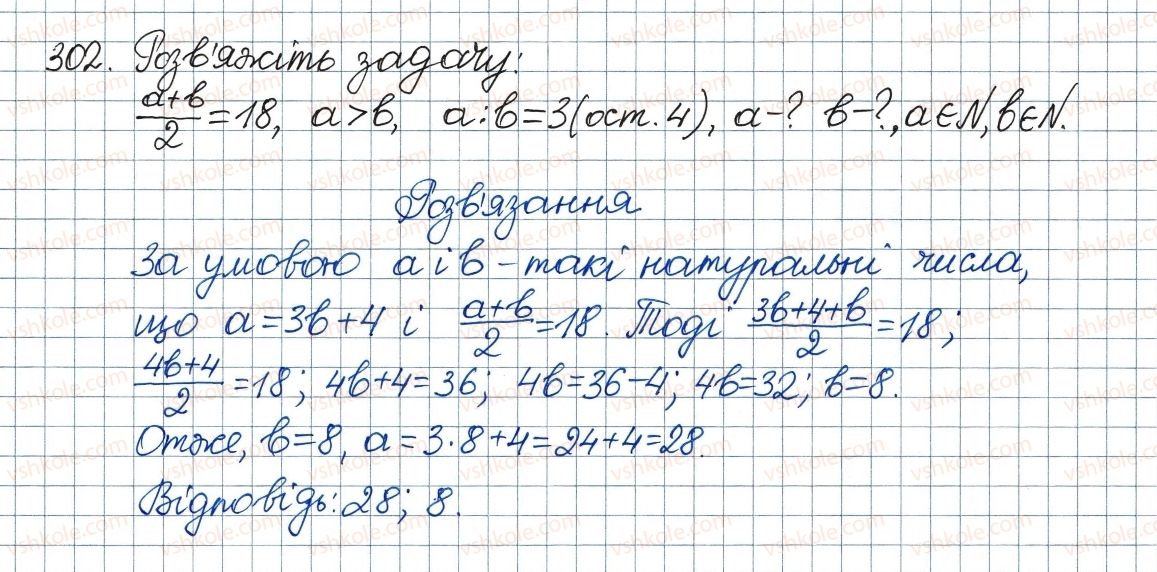 302. Розв'яжіть задачу:
(a+b)/2 = 18, a > b, a : b = 3 (ост. 4), a - ? b - ?, a ∈ N, b ∈ N.
Розв'язання
За умовою a і b - такі натуральні числа,
що a = 3b + 4 і (a+b)/2 = 18. Тоді (3b+4+b)/2 = 18;
(4b+4)/2 = 18; 4b + 4 = 36; 4b = 36 - 4; 4b = 32; b = 8.
Отже, b = 8, a = 3 · 8 + 4 = 24 + 4 = 28.
Відповідь: 28; 8.
vshkole.com